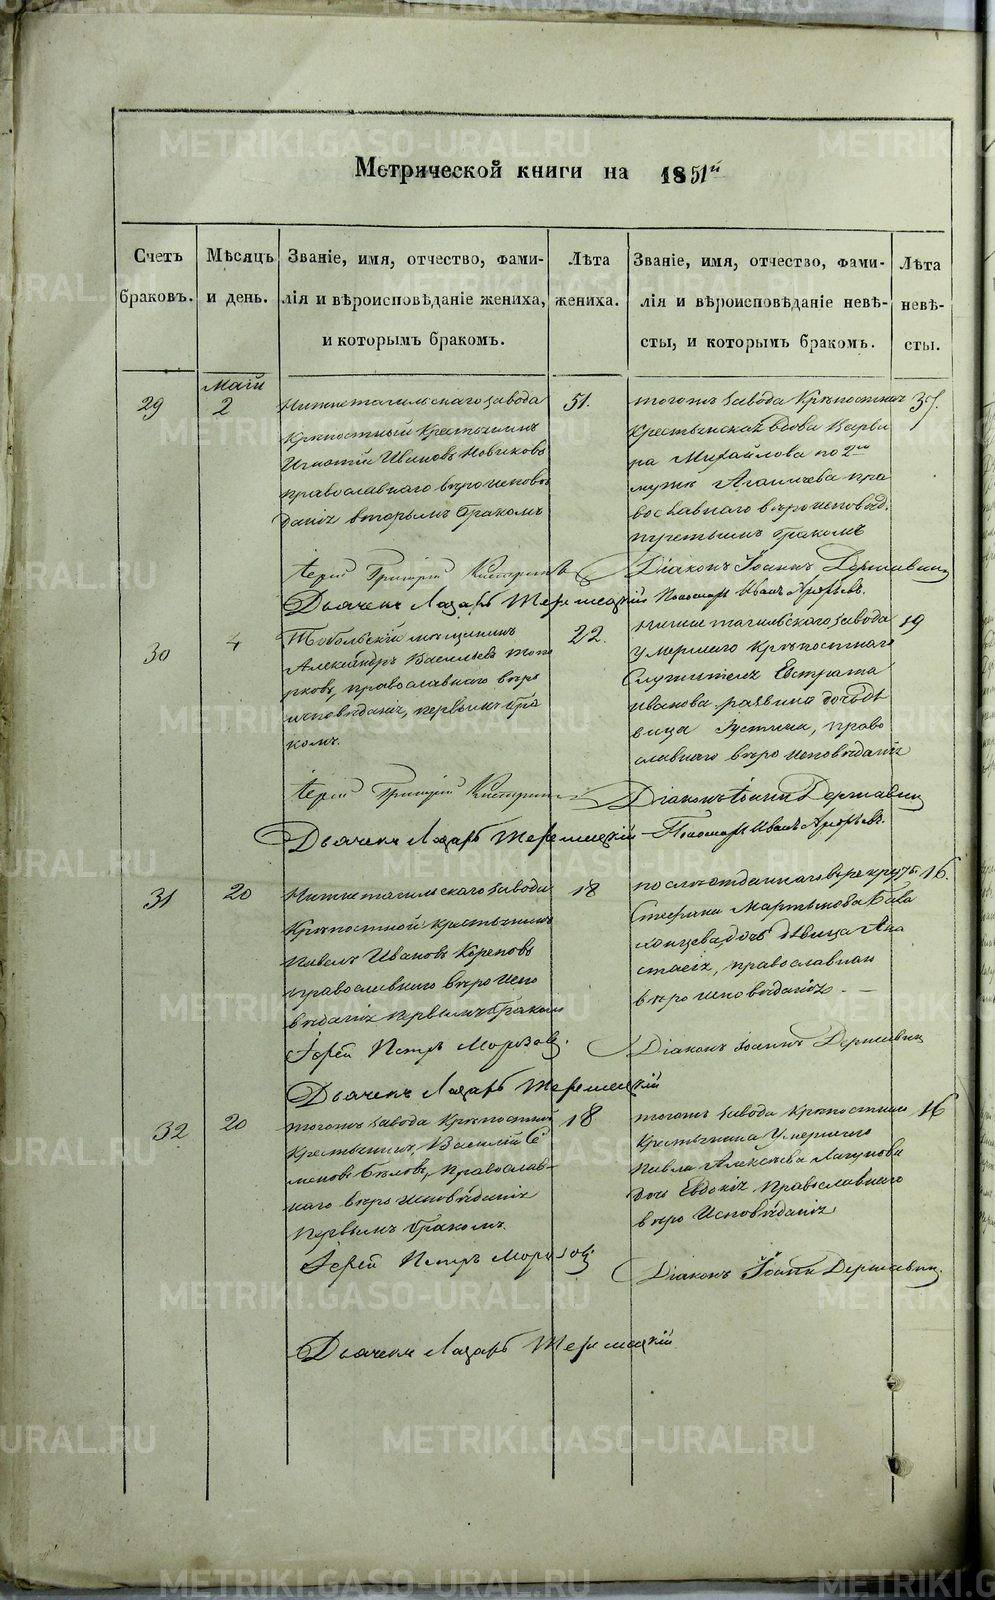 Метрической книги на 1851й
Счетъ браковъ.
Мѣсяцъ и день.
Званіе, имя, отчество, фами-
лія и вѣроисповѣданіе жениха,
и которымъ бракомъ.
Лѣта жениха.
Званіе, имя, отчество, фами-
лія и вѣроисповѣданіе невѣ-
сты, и которымъ бракомъ.
Лѣта невѣ-
сты.
29
Маіи
2
Нижнетагильскаго завода
Крѣпостный Крестьянинъ
Игнатій Ивановъ Новиковъ
православнаго вѣроисповѣ
данія вторымъ бракомъ
51.
тогожъ завода Крѣпостная
Крестьянская вдова Варва
ра Михайлова по 2му
мужѣ Агапичева пра
вославнаго вѣроисповѣд.
третьимъ бракомъ
37.
Іерей Григорій
Діаконъ Іоаннъ Державинъ
Дьячекъ Лазарь
Пономарь Иванъ Арефьевъ.
30
4
Тобольскій мѣщанинъ
Александръ Васильевъ Топо
рковъ, православнаго вѣро
исповѣданія, первымъ бра
комъ.
22.
Нижнетагильскаго завода
умершаго Крѣпостнаго
Служителя Евстрата
Иванова дочь дѣ
вица Устинья, право
славнаго вѣроисповѣданія
19
Іерей Григорій
Діаконъ Іоаннъ Державинъ
Дьячекъ Лазарь
Пономарь Иванъ Арефьевъ.
31
20
Нижнетагильскаго завода
Крѣпостной крестьянинъ
Павелъ Ивановъ Кореновъ
православнаго вѣроиспо
вѣданія первымъ бракомъ
18
послѣ отданнаго въ рекруты
Стефана Мартынова
дочь дѣвица Ана
стасія, православнаго
вѣроисповѣданія. —
16.
Іерей Петръ Морозовъ.
Діаконъ Іоаннъ Державинъ
Дьячекъ Лазарь
32
20
тогожъ завода Крѣпостный
Крестьянинъ, Василій Се
меновъ Бѣловъ, Православ-
наго вѣроисповѣданія
Первымъ бракомъ.
18
тогожъ завода Крѣпостнаго
Крестьянина Умершаго
Павла Алексѣева Лагунова
дочь Евдокія Православнаго
вѣроисповѣданія
16
Іерей Петръ Морозовъ
Діаконъ Іоаннъ Державинъ.
Дьячекъ Лазарь
METRIKI.GASO-URAL.RU